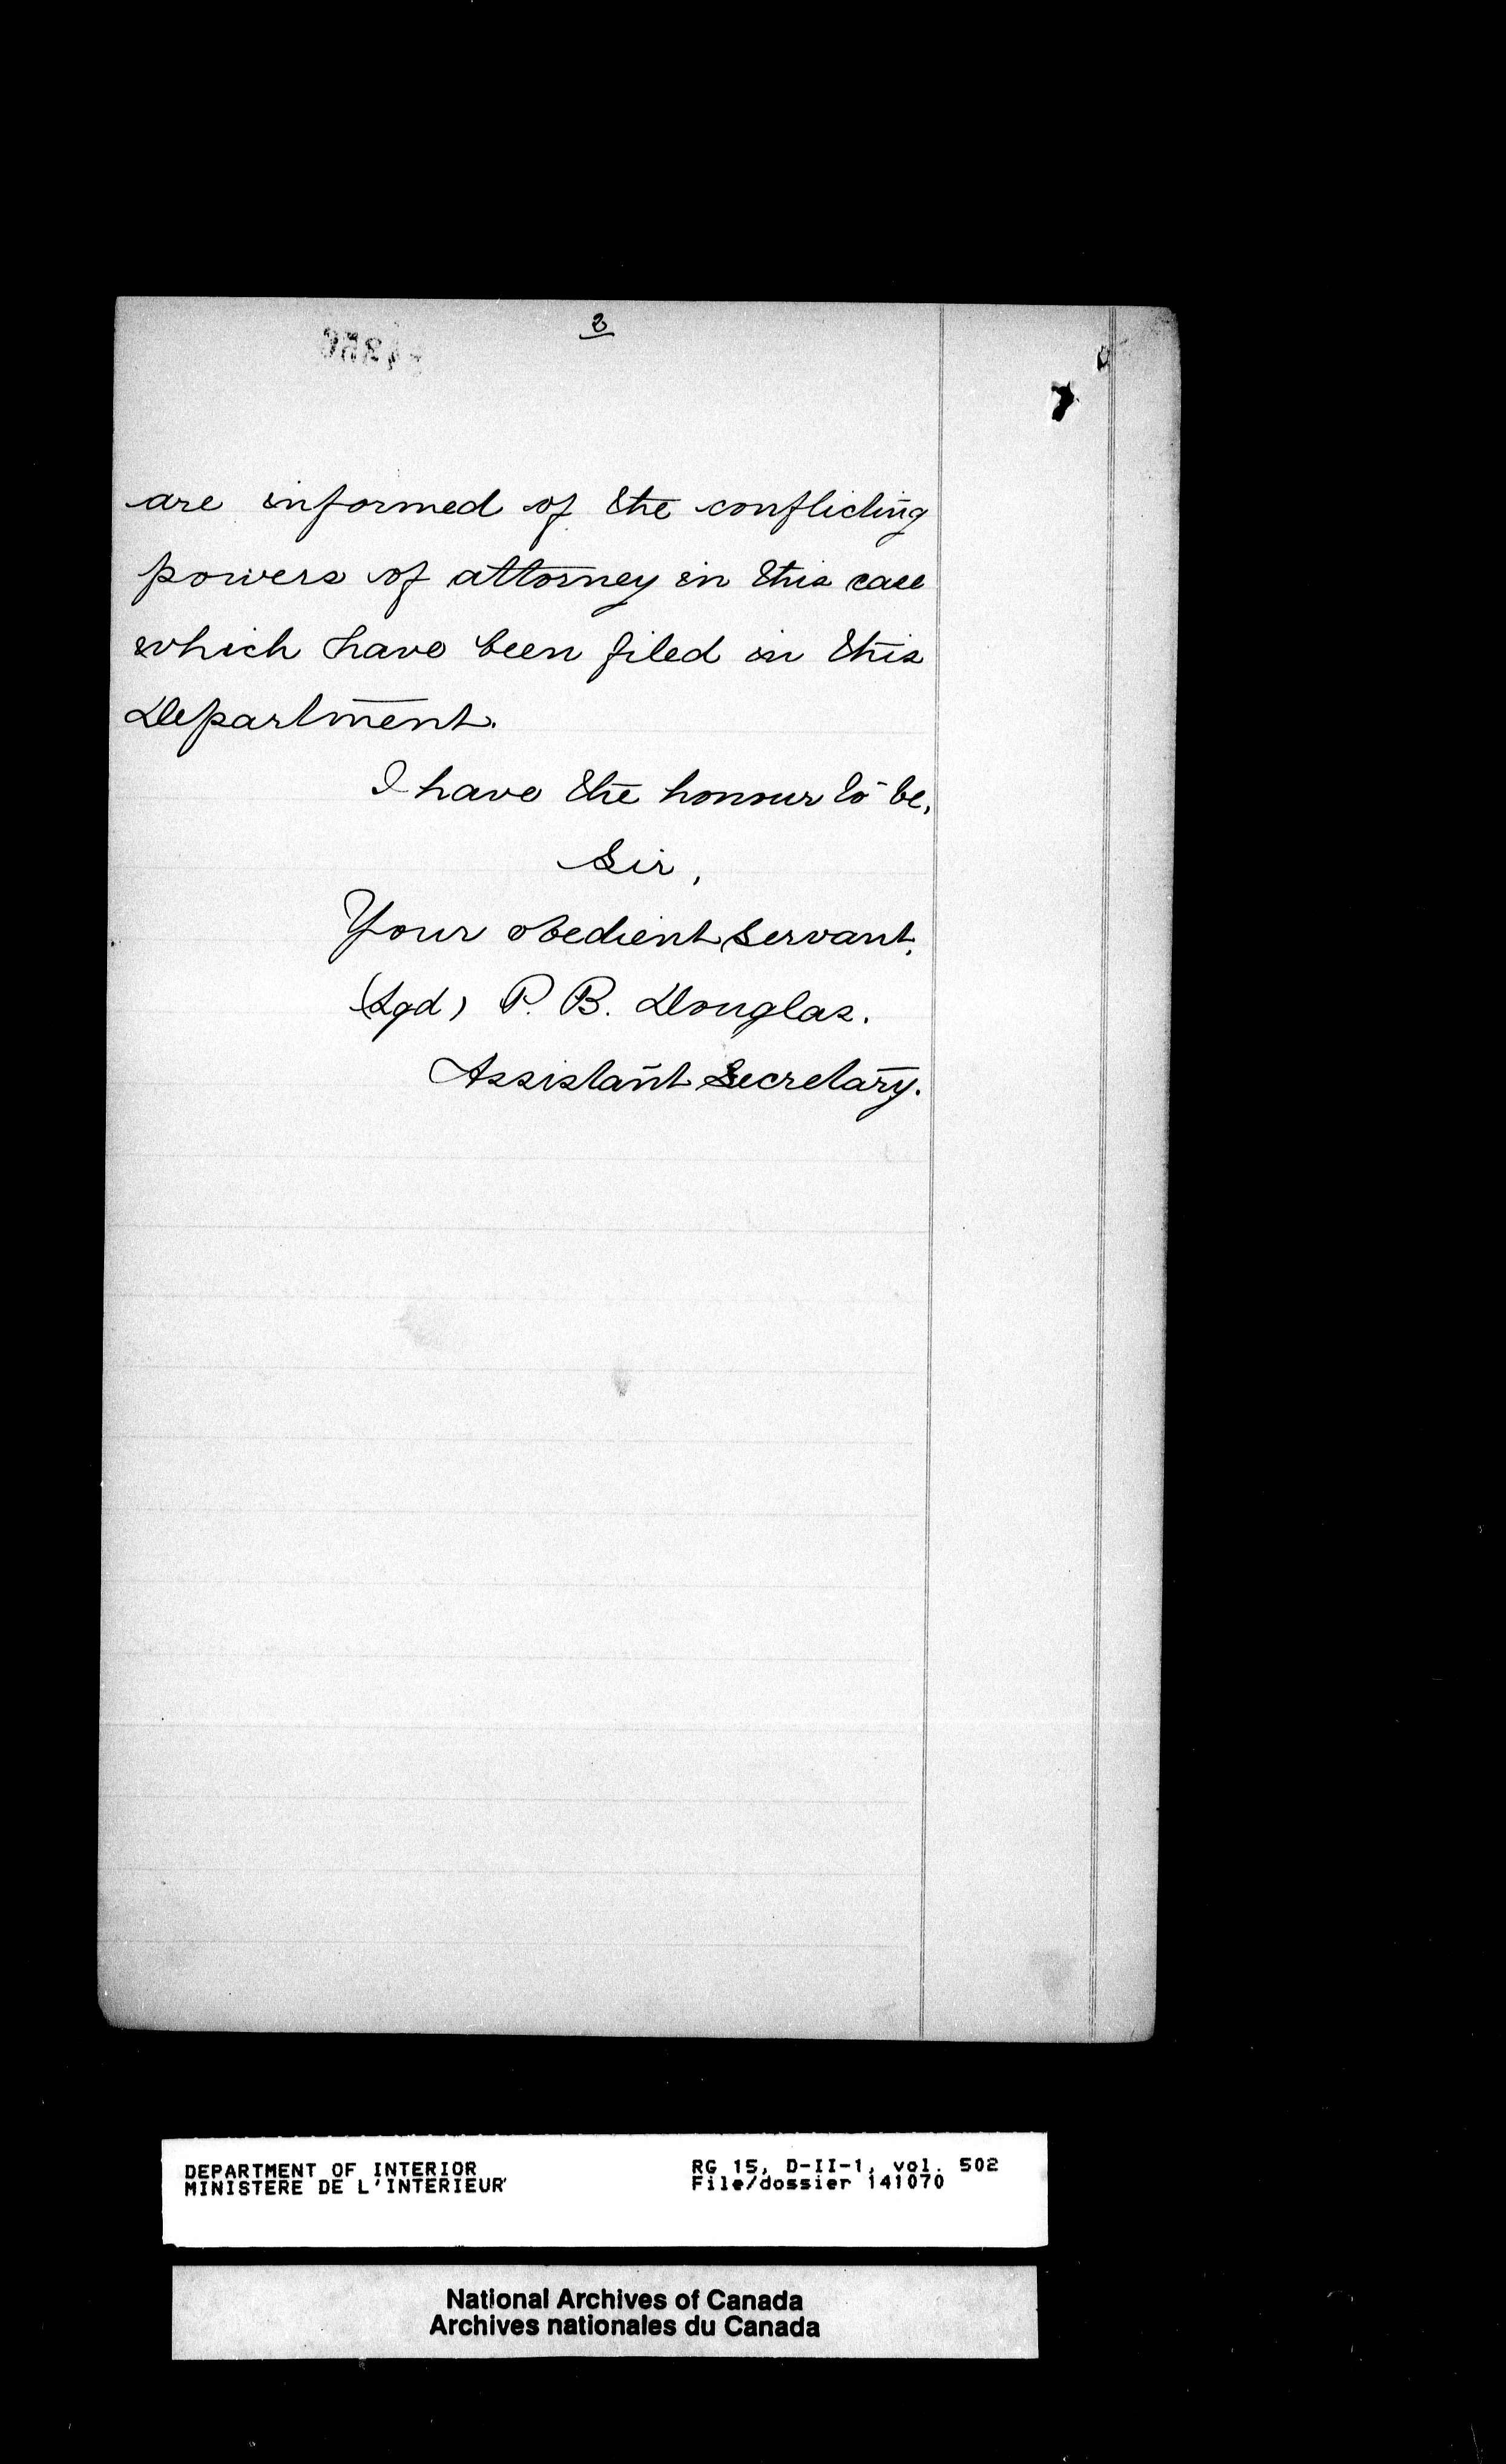 2
are informed of the conflicting
powers of attorney in this case
which have been filed in this
Department.
I have the honour to be,
Sir,
Your obedient servant,
(Sgd) P. B. Douglas.
Assistant Secretary.
DEPARTMENT OF INTERIOR RG 15, D-II-1, vol. 502
MINISTERE DE L'INTERIEUR File/dossier 141070
National Archives of Canada
Archives nationales du Canada